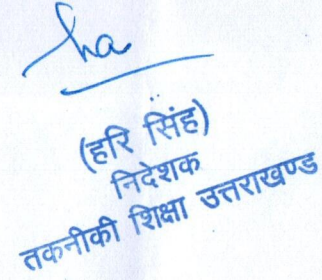 (हरि सिंह)
निदेशक
तकनीकी शिक्षा उत्तराखण्ड